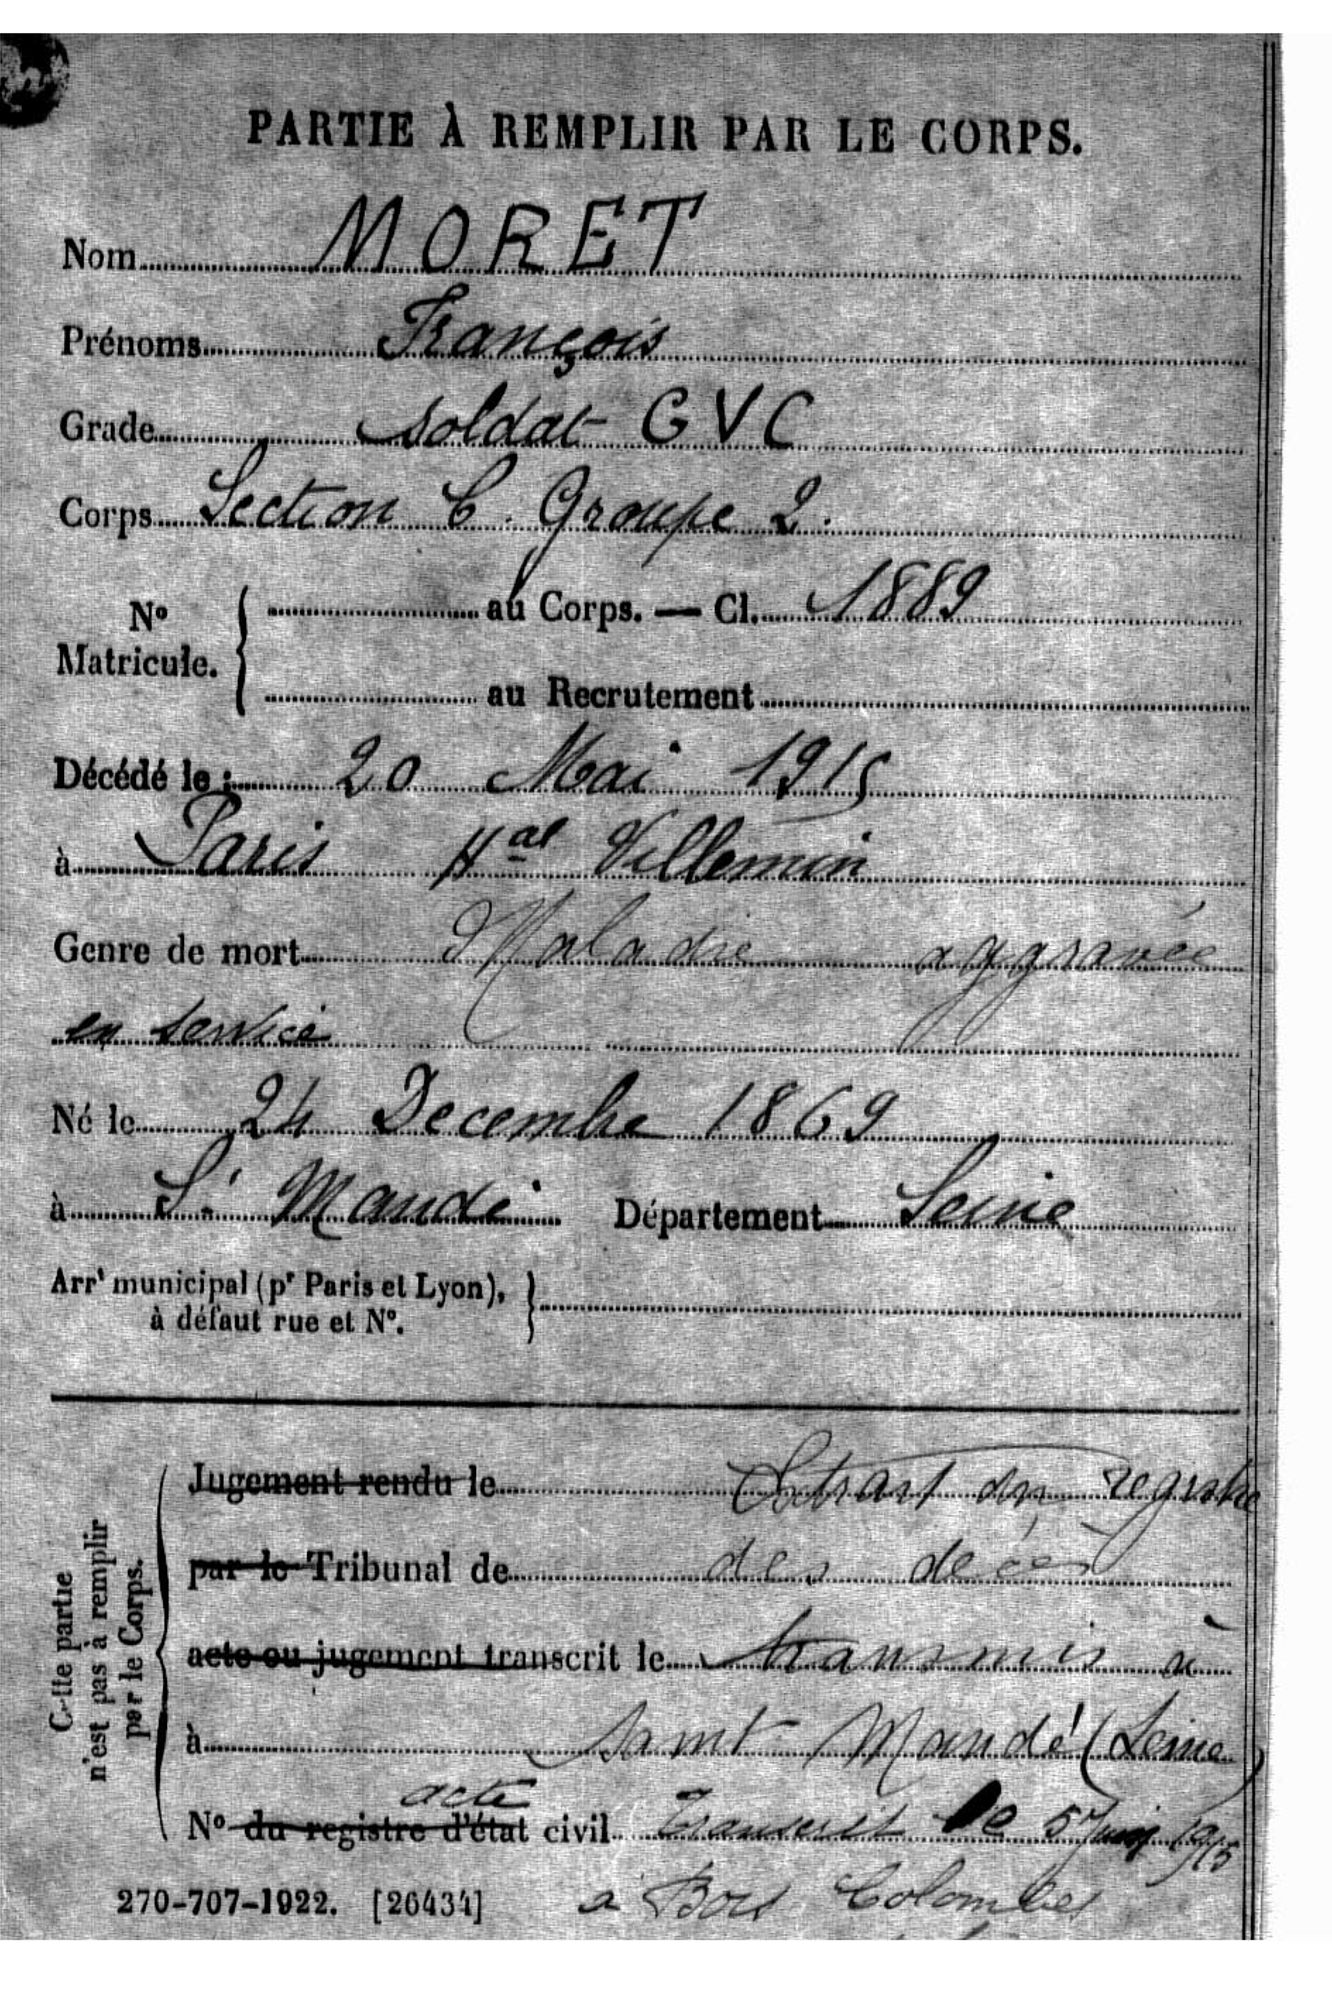 PARTIE À REMPLIR PAR LE CORPS.
Nom MORET
Prénoms François
Grade soldat GVC
Corps Section C. Groupe 2.
No Matricule. { au Corps. — Cl. 1889
au Recrutement
Décédé le : 20 Mai 1915
à Paris Hal Villemin
Genre de mort Maladie aggravée
en service
Né le 24 Decembre 1869
à St Mandé Département Seine
Arrt municipal (pr Paris et Lyon),
à défaut rue et No.
Cette partie
n'est pas à remplir
par le Corps.
Jugement rendu le Extrait du registre
par le Tribunal de des décès
acte ou jugement transcrit le transmis à
à Saint Mandé (Seine)
acte
No du registre d'état civil Transcrit le 5 Juin 1915
270-707-1922. [26434] a Bois Colombes